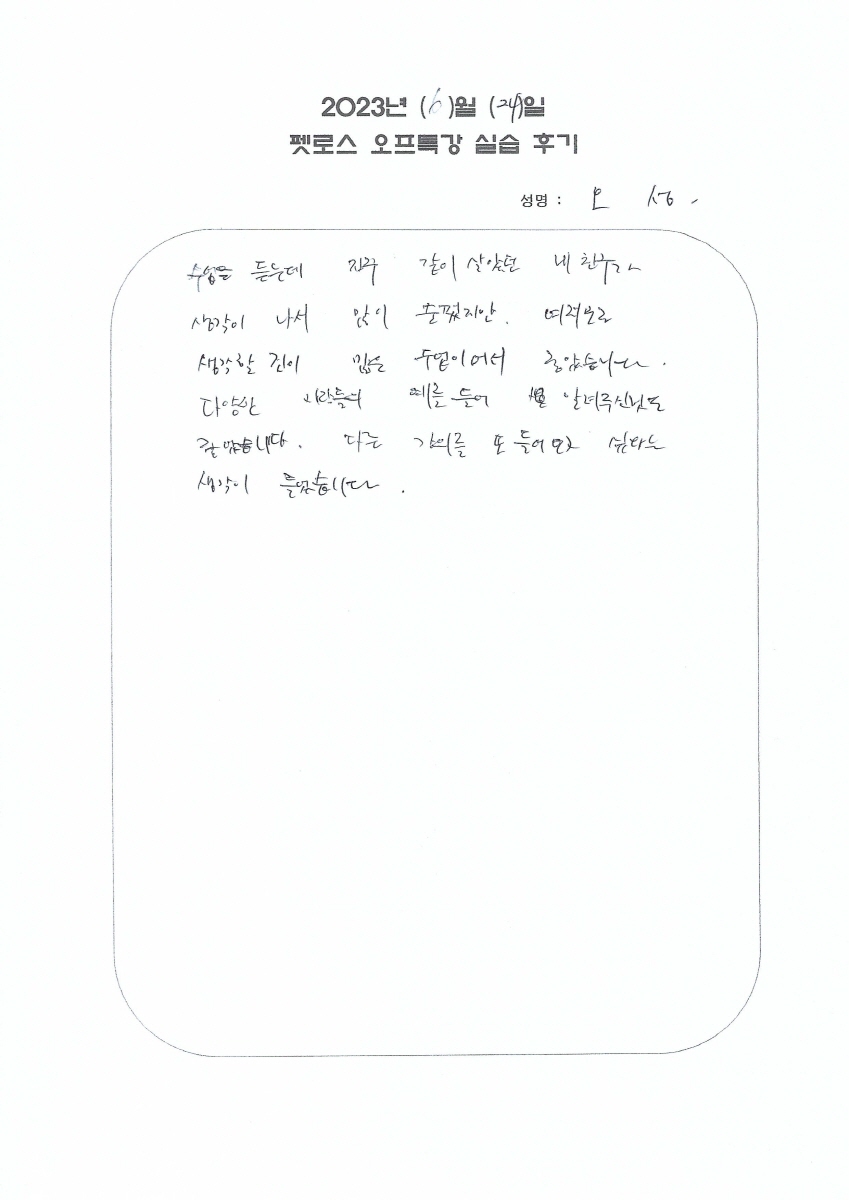 2023년 (6)월 (24)일
펫로스 오프특강 실습 후기
성명 : 오 성
수업을 듣는데 자꾸 같이 살았던 내 친구가
생각이 나서 많이 슬펐지만. 여러모로
생각할 점이 많은 수업이어서 좋았습니다.
다양한 사람들의 예를 들어 알려주신것도
좋았습니다. 다른 강의를 또 들어보고 싶다는
생각이 들었습니다.